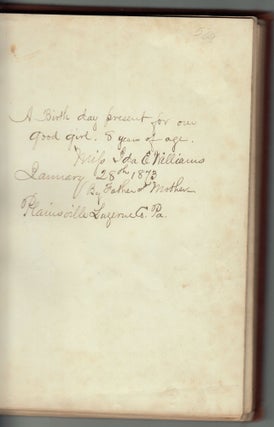 A Birth day present for our
good girl. 8 years of age.
Miss Ida E Williams
January 28th 1873
By Father & Mother
Plainsville Luzerne Co. Pa.